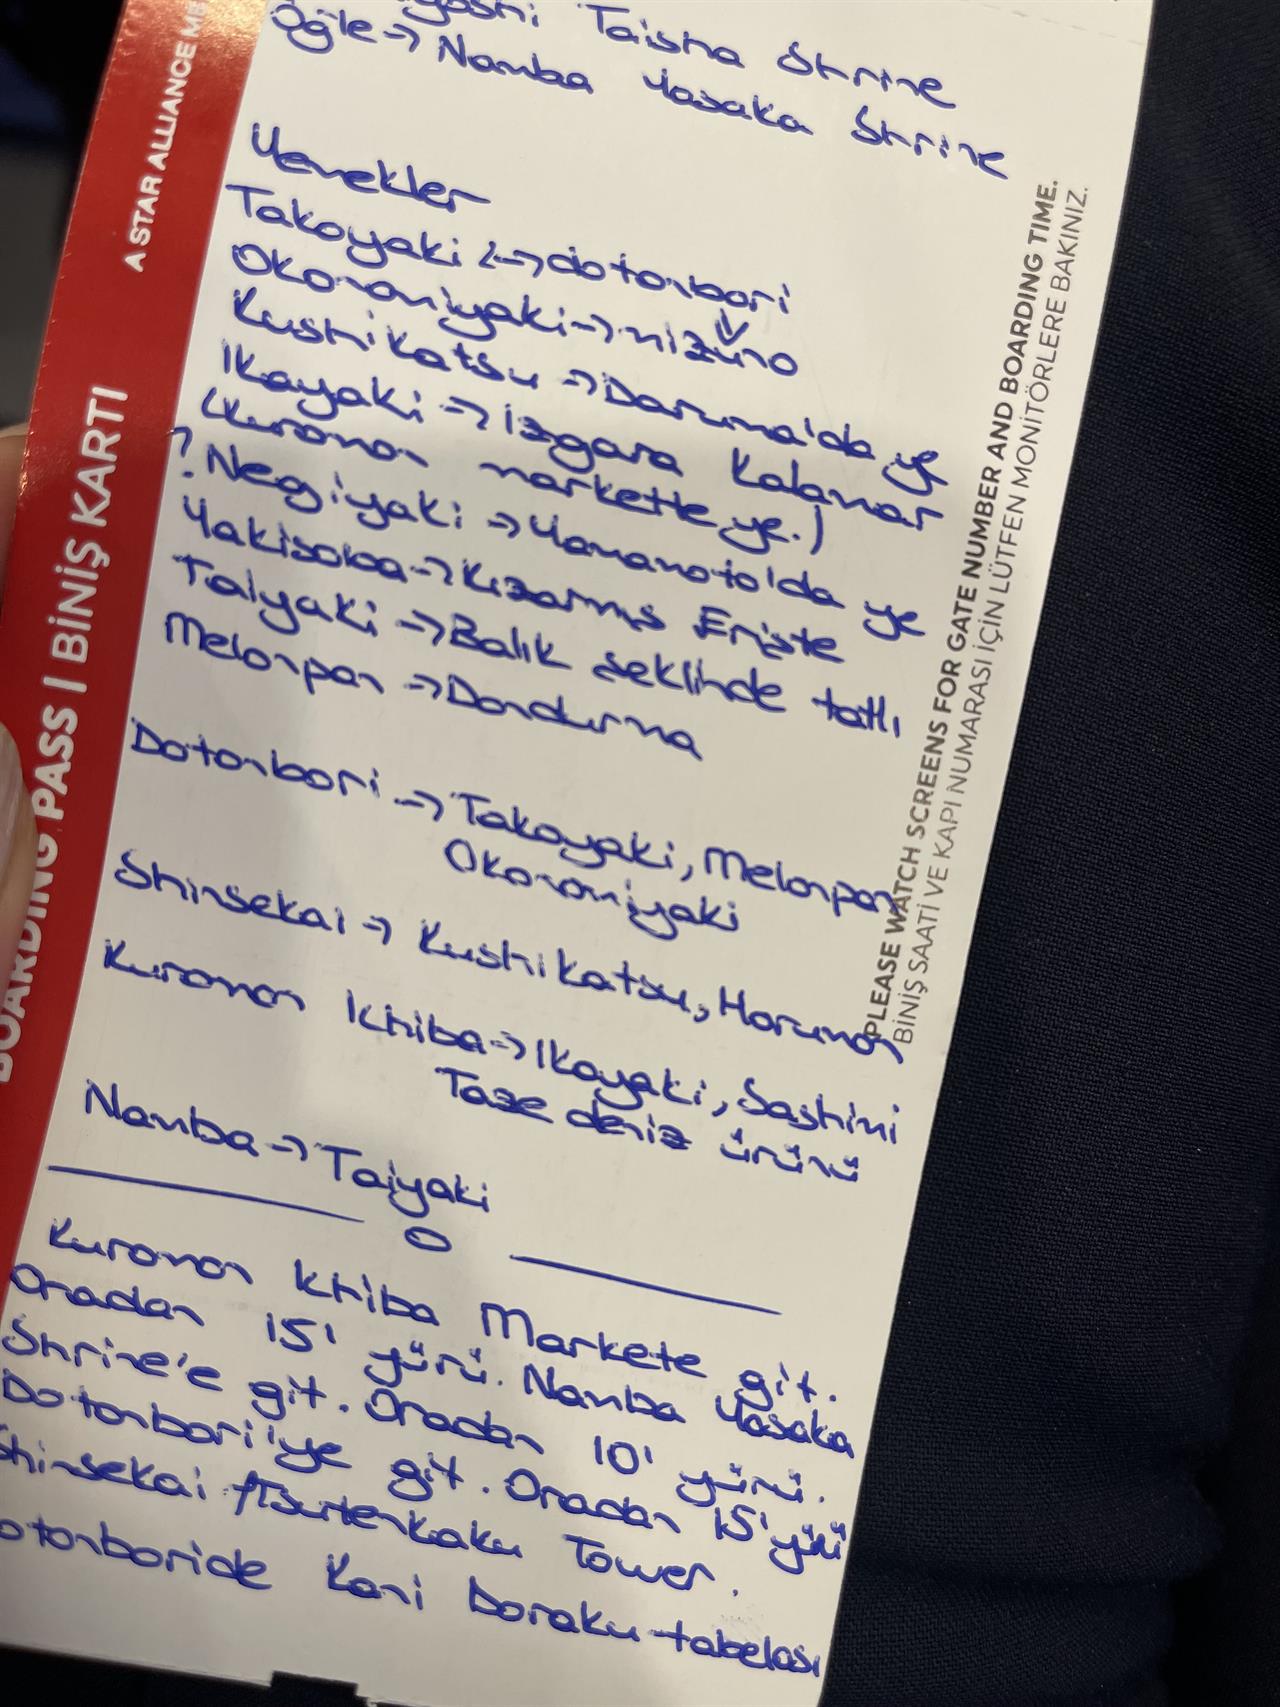 Taisha Shrine
Öğle → Namba Yasaka Shrine
Yemekler
Takoyaki → dotonbori
Okonomiyaki → mizuno
Kushikatsu → Daruma'da ye
Ikayaki → Izgara Kalamar
(Kuromon markette ye.)
? Negiyaki → Yamamoto'da ye
Yakisoba → Kızarmış Erişte
Taiyaki → Balık şeklinde tatlı
Melonpan → Dondurma
Dotonbori → Takoyaki, Melonpan
Okonomiyaki
Shinsekai → Kushikatsu, Horumon
Kuromon Ichiba → Ikayaki, Sashimi
Taze deniz ürünü
Namba → Taiyaki
Kuromon Ichiba Markete git.
Oradan 15' yürü. Namba Yasaka
Shrine'e git. Oradan 10' yürü.
Dotonbori'ye git. Oradan 15' yürü
Shinsekai / Tsutenkaku Tower.
Dotonboride Kani Doraku tabelası
A STAR ALLIANCE ME
BOARDING PASS | BİNİŞ KARTI
PLEASE WATCH SCREENS FOR GATE NUMBER AND BOARDING TIME.
BİNİŞ SAATİ VE KAPI NUMARASI İÇİN LÜTFEN MONİTÖRLERE BAKINIZ.